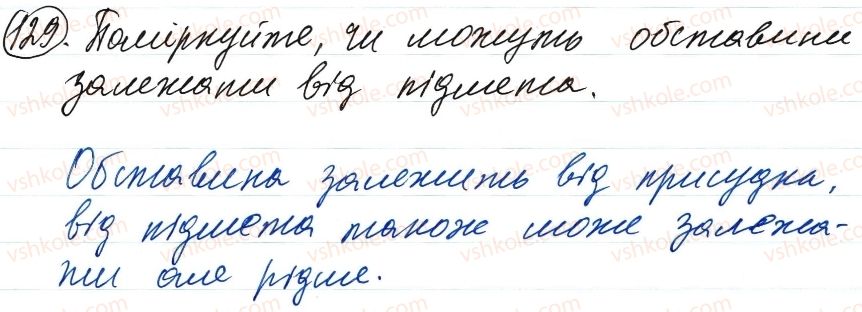 129. Поміркуйте, чи можуть обставини
залежати від підмета.
Обставина залежить від присудка,
від підмета також може залежа-
ти але рідше.